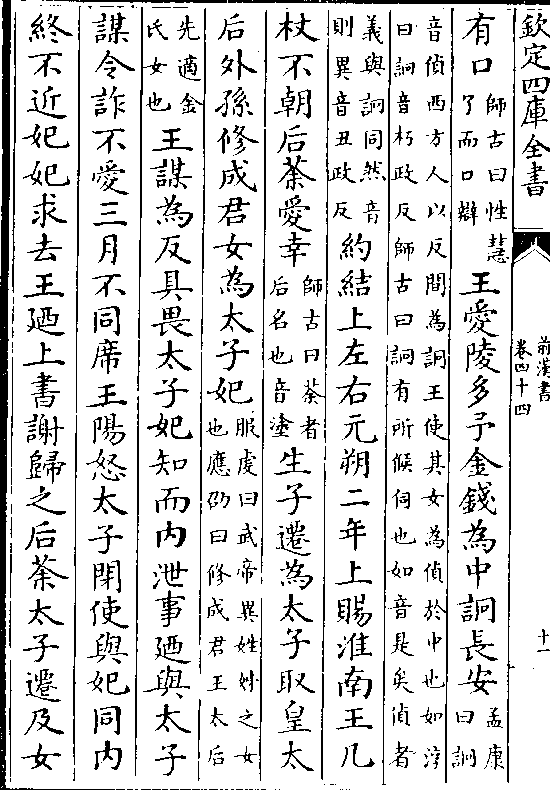 欽定四庫全書
前漢書
卷四十四
十一
有口
師古曰性慧
了而口辯
王愛陵多予金錢為中詗長安
孟康
曰詗
音偵西方人以反間為詗王使其女為偵於中也如淳
曰詗音朽政反師古曰詗有所候伺也如音是矣偵者
義與詗同然音
則異音丑政反
約結上左右元朔二年上賜淮南王几
杖不朝后荼愛幸
師古曰荼者
后名也音塗
生子遷為太子取皇太
后外孫修成君女為太子妃
服虔曰武帝異姓姊之女
也應劭曰修成君王太后
先適金
氏女也
王謀為反具畏太子妃知而内泄事廼與太子
謀令詐不愛三月不同席王陽怒太子閉使與妃同内
終不近妃妃求去王廼上書謝歸之后荼太子遷及女